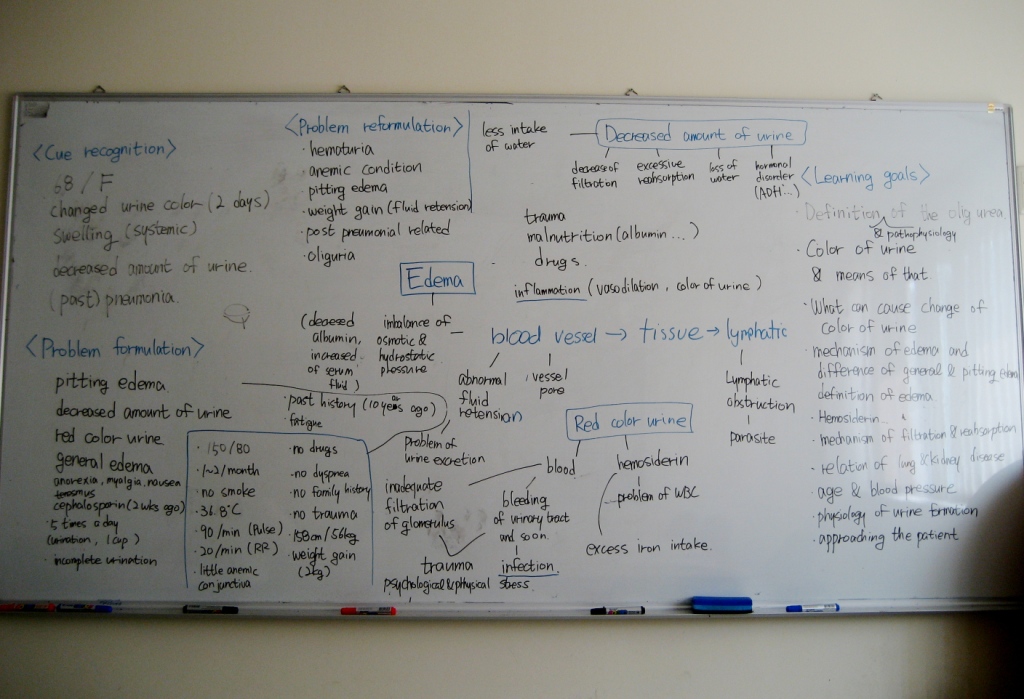 <Cue recognition>
68 / F
changed urine color (2 days)
swelling (systemic)
decreased amount of urine.
(past) pneumonia.
<Problem formulation>
pitting edema
decreased amount of urine
red color urine
general edema
anorexia, myalgia, nausea
tenesmus
cephalosporin (2 wks ago)
· 5 times a day
(urination, 1 cup)
· incomplete urination
· 150/80
· 1~2/month
· no smoke
· 36.8°C
· 90/min (Pulse)
· 20/min (RR)
· little anemic
conjunctiva
· no drugs
· no dyspnea
· no family history
· no trauma
· 158cm/56kg
· weight gain
(2kg)
· past history (10 years ago)
· fatigue
<Problem reformulation>
· hematuria
· anemic condition
pitting edema
· weight gain (fluid retension)
· post pneumonial related
· oliguria
less intake
of water
Decreased amount of urine
decrease of
filtration
excessive
reahsorption
loss of
water
hormonal
disorder
(ADH...)
trauma
malnutrition (albumin ...)
drugs.
inflammation (vasodilation, color of urine)
Edema
(deceesed
albumin,
increased
of serum
fluid)
imbalance of
osmotic &
hydrostatic
pressure
blood vessel → tissue → lymphatic
abnormal
fluid
retension
vessel
pore
Lymphatic
obstruction
parasite
Problem of
urine excretion
Red color urine
blood
hemosiderin
problem of WBC
excess iron intake.
inadequate
filtration
of glomerulus
bleeding
of urinary tract
and soon.
infection.
trauma
psychological & physical stress.
<Learning goals>
· Definition of the olig urea.
& pathophysiology
· Color of urine
& means of that.
· What can cause change of
color of urine
· mechanism of edema and
difference of general & pitting edema
definition of edema
· Hemosiderin..
· mechanism of filtration & reahsorption
· relation of lung & kidney disease
· age & blood pressure
· physiology of urine formation
· approaching the patient